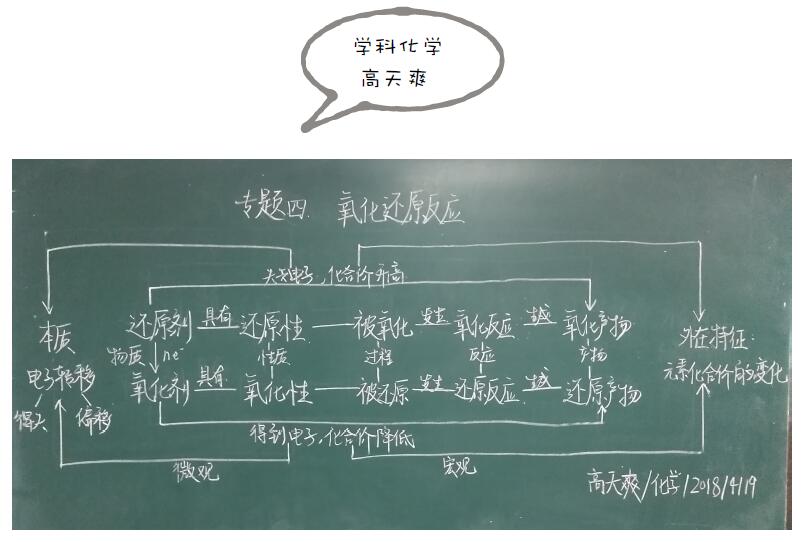 学科化学
高天爽
专题四 氧化还原反应
失去电子,化合价升高
还原剂 具有 还原性 被氧化 发生 氧化反应 生成 氧化产物
本质
外在特征:
物质 ne⁻ 性质 过程 反应 产物
电子转移
元素化合价的变化
氧化剂 具有 氧化性 被还原 发生 还原反应 生成 还原产物
得失 偏移
得到电子,化合价降低
微观 宏观
高天爽/化学/2018/4/19